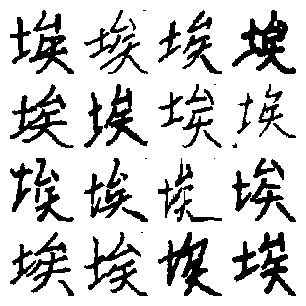 埃埃埃埃
埃埃埃埃
埃埃埃埃
埃埃埃埃